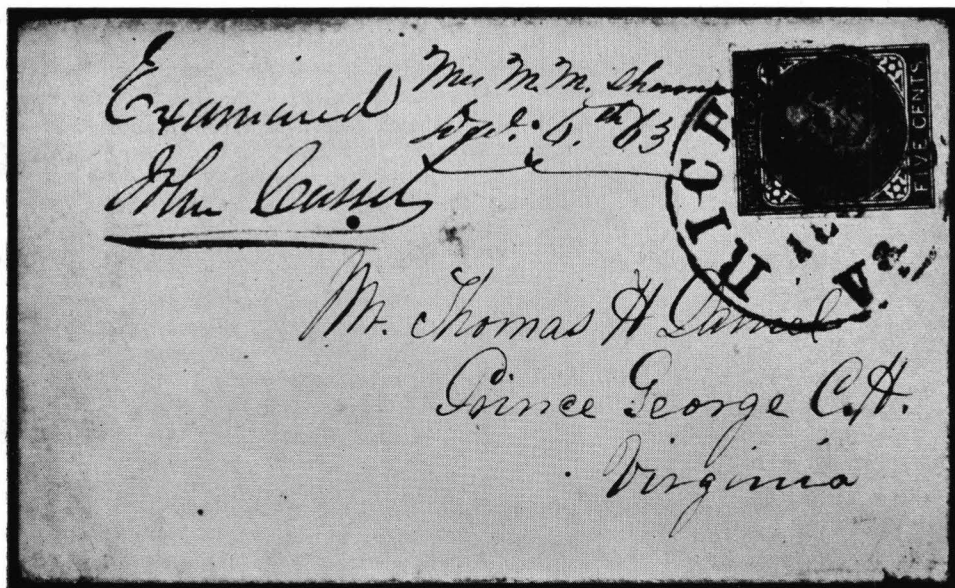 Examined
John Cassel
Mrs M. M.
6th 63
FIVE CENTS
RICH
VA
Mr. Thomas H Daniel
Prince George C.H.
Virginia